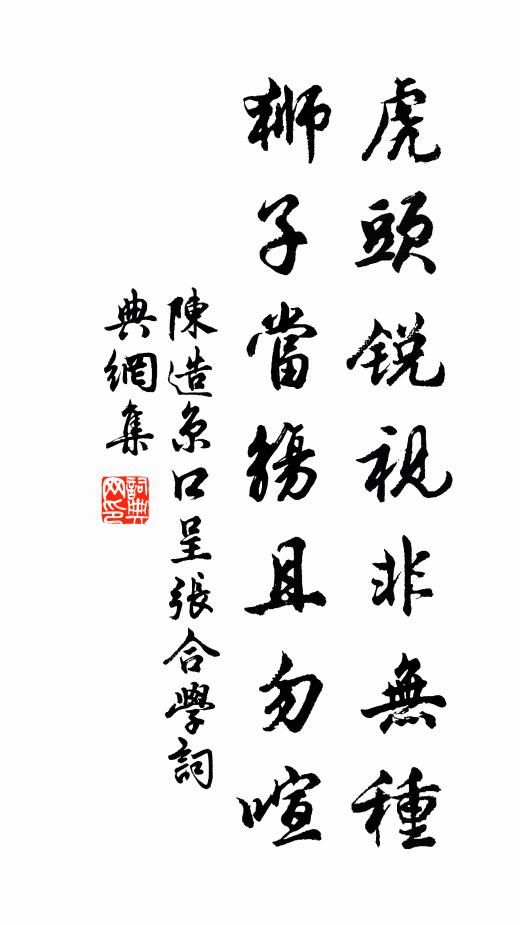 虎頭銳視非無種
獅子當觴且勿喧
陳造京口呈張合學詞
典網集
詞典网印